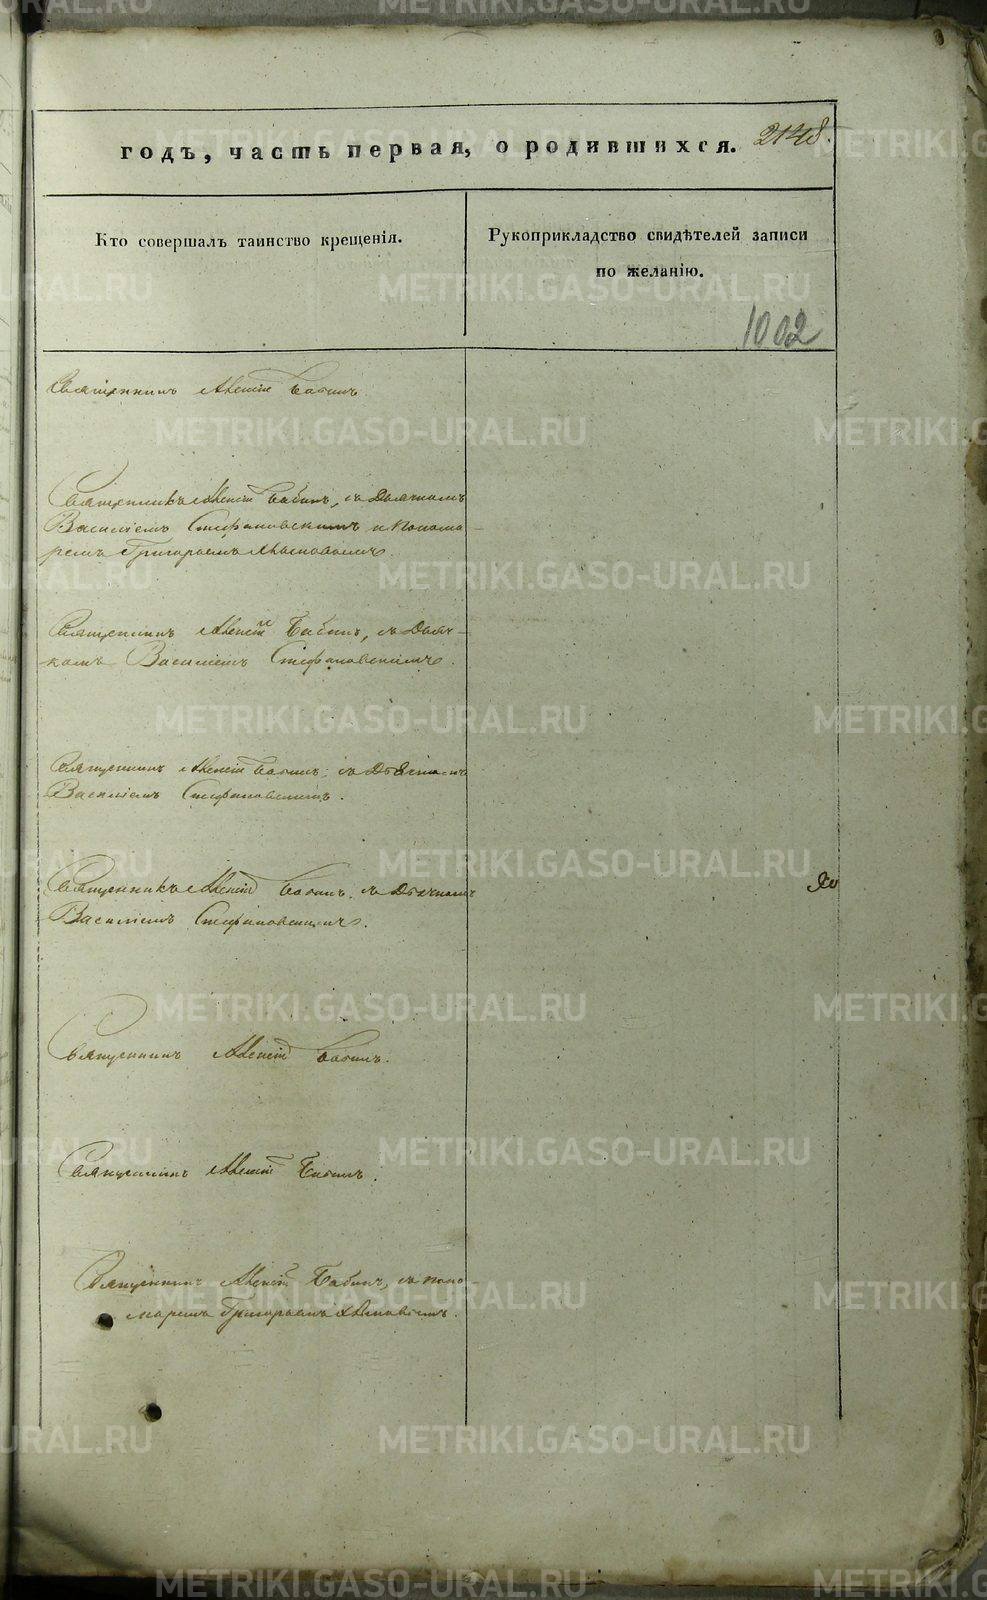 годъ, часть первая, о родившихся. 2148.
Кто совершалъ таинство крещенія.
Рукоприкладство свидѣтелей записи
по желанію.
1002
Священникъ Алексій Бабинъ
Священникъ Алексій Бабинъ, съ Дьячкомъ
Василіемъ Стефановскимъ и Понома-
ремъ Григорьемъ
Священникъ Алексій Бабинъ, съ Дьяч-
комъ Василіемъ Стефановскимъ.
Священникъ Алексій Бабинъ, съ Дьячкомъ
Василіемъ Стефановскимъ.
Священникъ Алексій Бабинъ, съ Дьячкомъ
Василіемъ Стефановскимъ.
Священникъ Алексій Бабинъ.
Священникъ Алексій Бабинъ.
Священникъ Алексій Бабинъ, съ поно-
маремъ Григорьемъ
METRIKI.GASO-URAL.RU